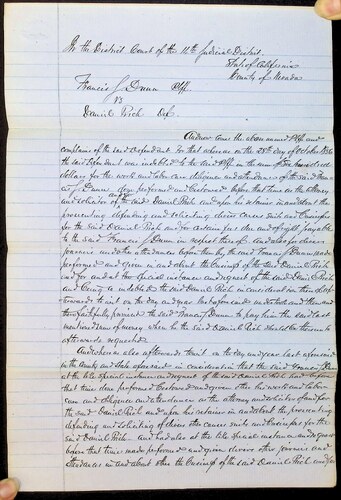 In the District Court of the 14th Judicial District
State of California
County of Nevada
Francis J Dunn Plff
vs
Daniel Rich Def
And now came the above named Plff and
complains of the said defendant For that whereas on the 28th day of October 18
the said Defendant was indebted to the said Plff in the sum of hundred
dollars for the work and labor care diligence and attendance of the said Francis
J Dunn done performed and bestowed before that time as the attorney
and solicitor of the said Daniel Rich and upon his retainer in and about the
prosecuting defending and soliciting divers causes suits and
for the said Daniel Rich and for certain fees due and of right payable
to the said Francis J Dunn in respect thereof and also for divers
journies and other attendances before then by the said Francis J Dunn made
performed and given in and about the business of the said Daniel Rich
and for and at the special instance and request of the said Daniel Rich
and being so indebted the said Daniel Rich in consideration thereof
afterwards to wit on the day and year last aforesaid undertook and then and there
faithfully promised the said Francis J Dunn to pay him the said last
mentioned sum of money when he the said Daniel Rich should be thereunto
afterwards requested
And whereas also afterwards to wit on the day and year last aforesaid
in the County and State aforesaid in consideration that the said Francis J Dunn
at the like special instance and request of the said Daniel Rich had before
that time done performed bestowed and given other his work and labor
care and diligence and attendance as the attorney and solicitor of and for
the said Daniel Rich and upon his retainer in and about the prosecuting
defending and soliciting of divers other causes suits and for the
said Daniel Rich and had also at the like special instance and request
before that time made performed and given divers other journies and
attendances in and about other the business of the said Daniel Rich and for